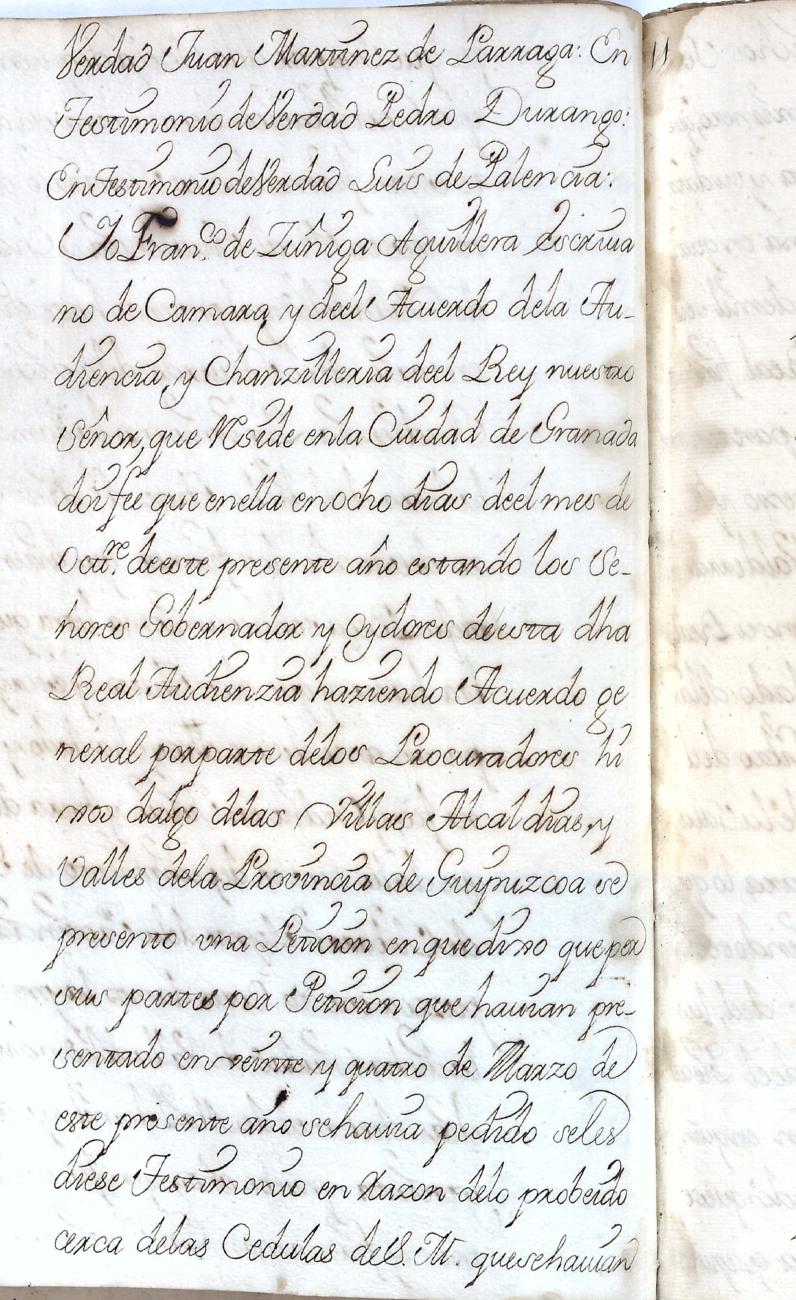 Verdad Juan Martinez de Larraga: En
Testimonio de Verdad Pedro Durango:
En Testimonio de Verdad Luis de Palencia:
Yo Fran.co de Zuñiga Aguillera escriua
no de Camara y deel Acuerdo dela Au-
diencia, y Chanzilleria deel Rey nuestro
Señor, que Reside enla Ciudad de Granada
doi fee que enella en ocho dias deel mes de
Octt.re deeste presente año estando los se-
ñores Gobernador y oydores deesta dha
Real Audienzia haziendo Acuerdo ge
neral por parte delos Procuradores hi
nos dalgo delas Villas Alcaldias, y
Valles dela Provincia de Guypuzcoa se
presento una Peticion en que dixo que por
sus partes por Peticion que hauian pre-
sentado en veinte y quatro de Marzo de
este presente año se hauia pedido seles
diese Testimonio en Razon delo probeido
cerca delas Cedulas de S. M. que se hauian